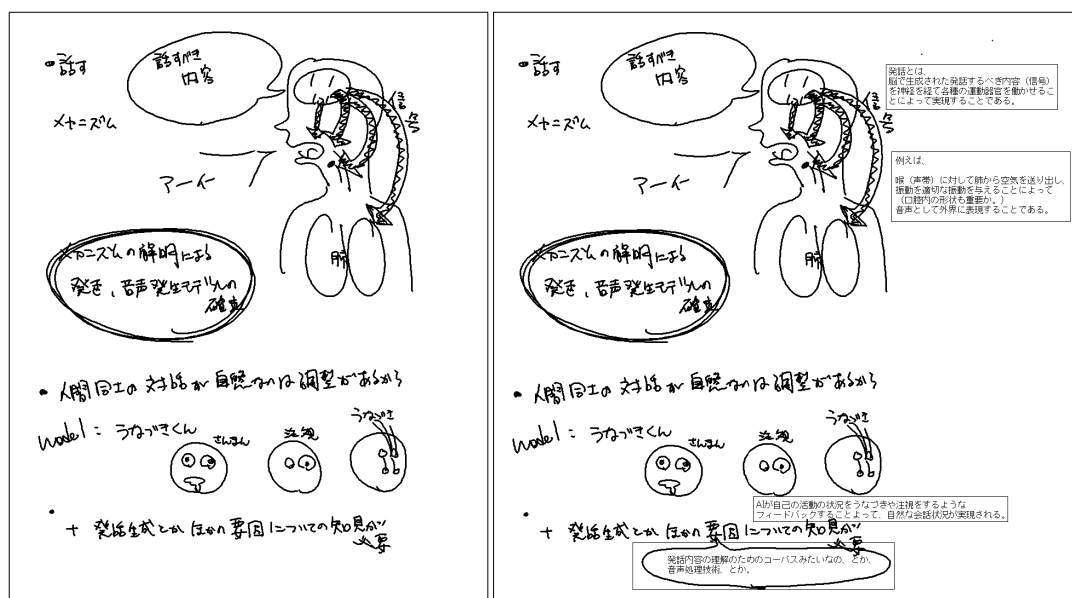 ・話す
話すべき
内容
メカニズム
アーイー
肺
メカニズムの解明による
発話、音声発生モデルの
確立
・人間同士の対話が自然なのは調整があるから
model : うなづきくん
さんまん
注視
うなづき
・
+ 発話生成とかほかの要因についての知見が
必要
・話す
話すべき
内容
メカニズム
アーイー
肺
発話とは、
脳で生成された発話するべき内容（信号）
を神経を経て各種の運動器官を働かせるこ
とによって実現することである。
例えば、
喉（声帯）に対して肺から空気を送り出し、
振動を適切な振動を与えることによって
（口腔内の形状も重要か。）
音声として外界に表現することである。
メカニズムの解明による
発話、音声発生モデルの
確立
・人間同士の対話が自然なのは調整があるから
model : うなづきくん
さんまん
注視
うなづき
AIが自己の活動の状況をうなづきや注視をするような
フィードバックすることよって、自然な会話状況が実現される。
・
+ 発話生成とかほかの要因についての知見が
必要
発話内容の理解のためのコーパスみたいなの、とか、
音声処理技術、とか。